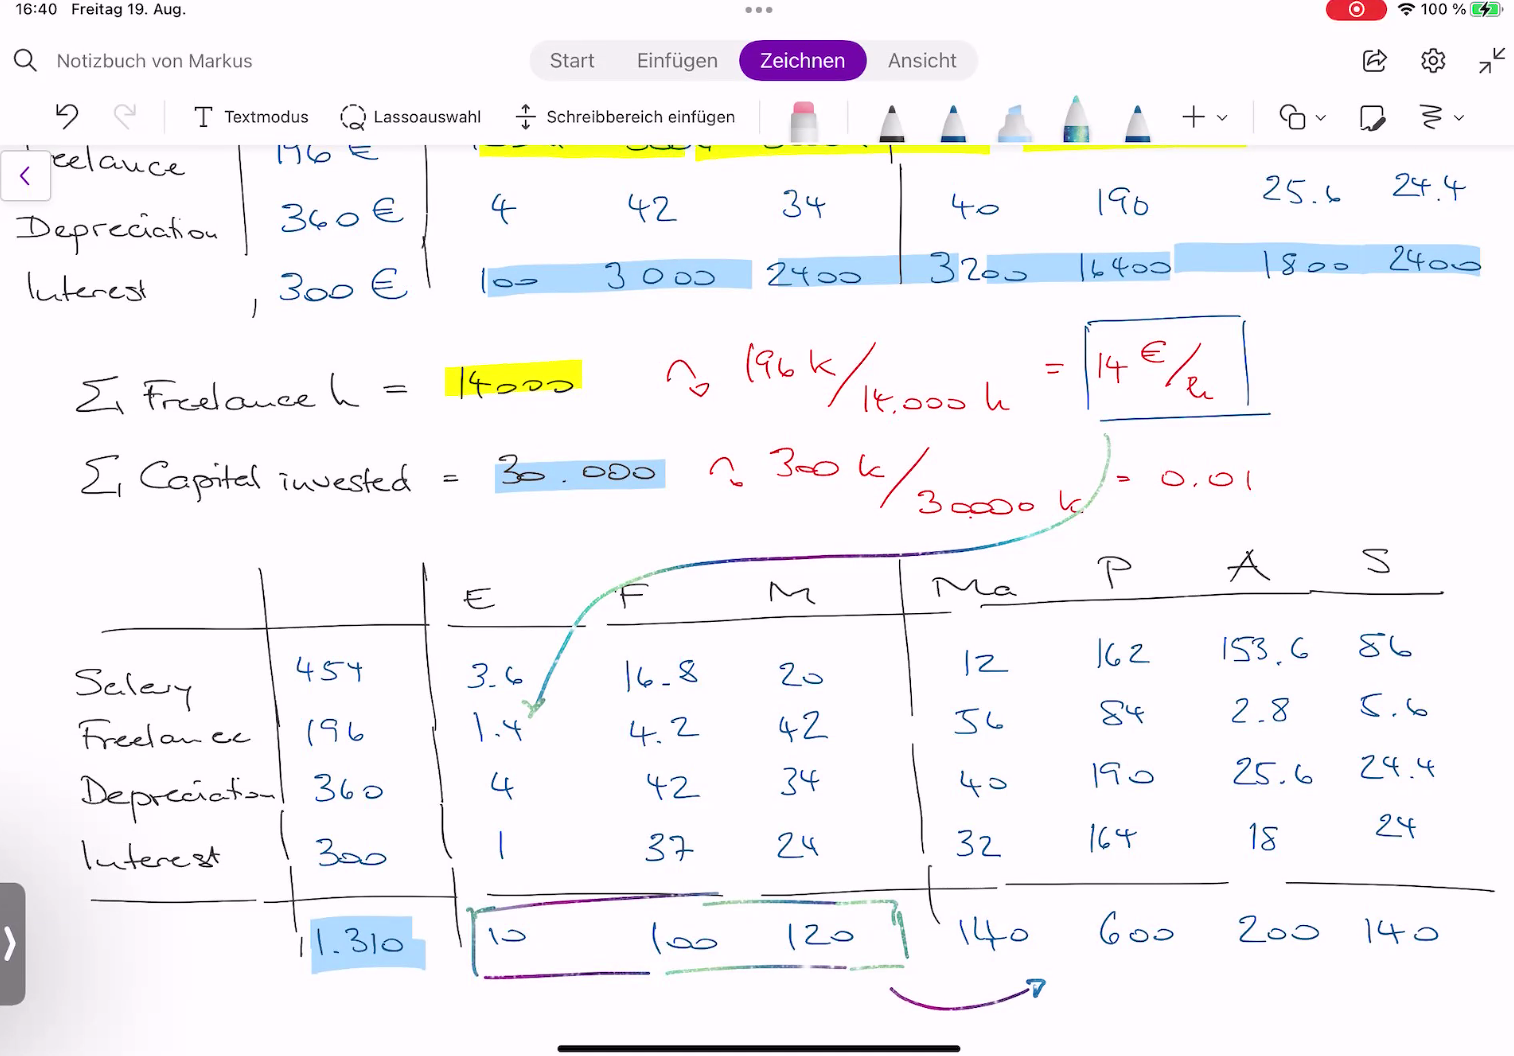 16:40 Freitag 19. Aug. 100 %
Notizbuch von Markus Start Einfügen Zeichnen Ansicht
Textmodus Lassoauswahl Schreibbereich einfügen
reelance 196 €
Depreciation 360 € 4 42 34 40 190 25.6 24.4
Interest 300 € 100 3000 2400 3200 16400 1800 2400
Σ Freelance h = 14000 196 k / 14.000 h = 14 €/h
Σ Capital invested = 30.000 300 k / 30000 k = 0.01
E F M Ma P A S
Salary 454 3.6 16.8 20 12 162 153.6 86
Freelance 196 1.4 4.2 42 56 84 2.8 5.6
Depreciation 360 4 42 34 40 190 25.6 24.4
Interest 300 1 37 24 32 164 18 24
1.310 10 100 120 140 600 200 140